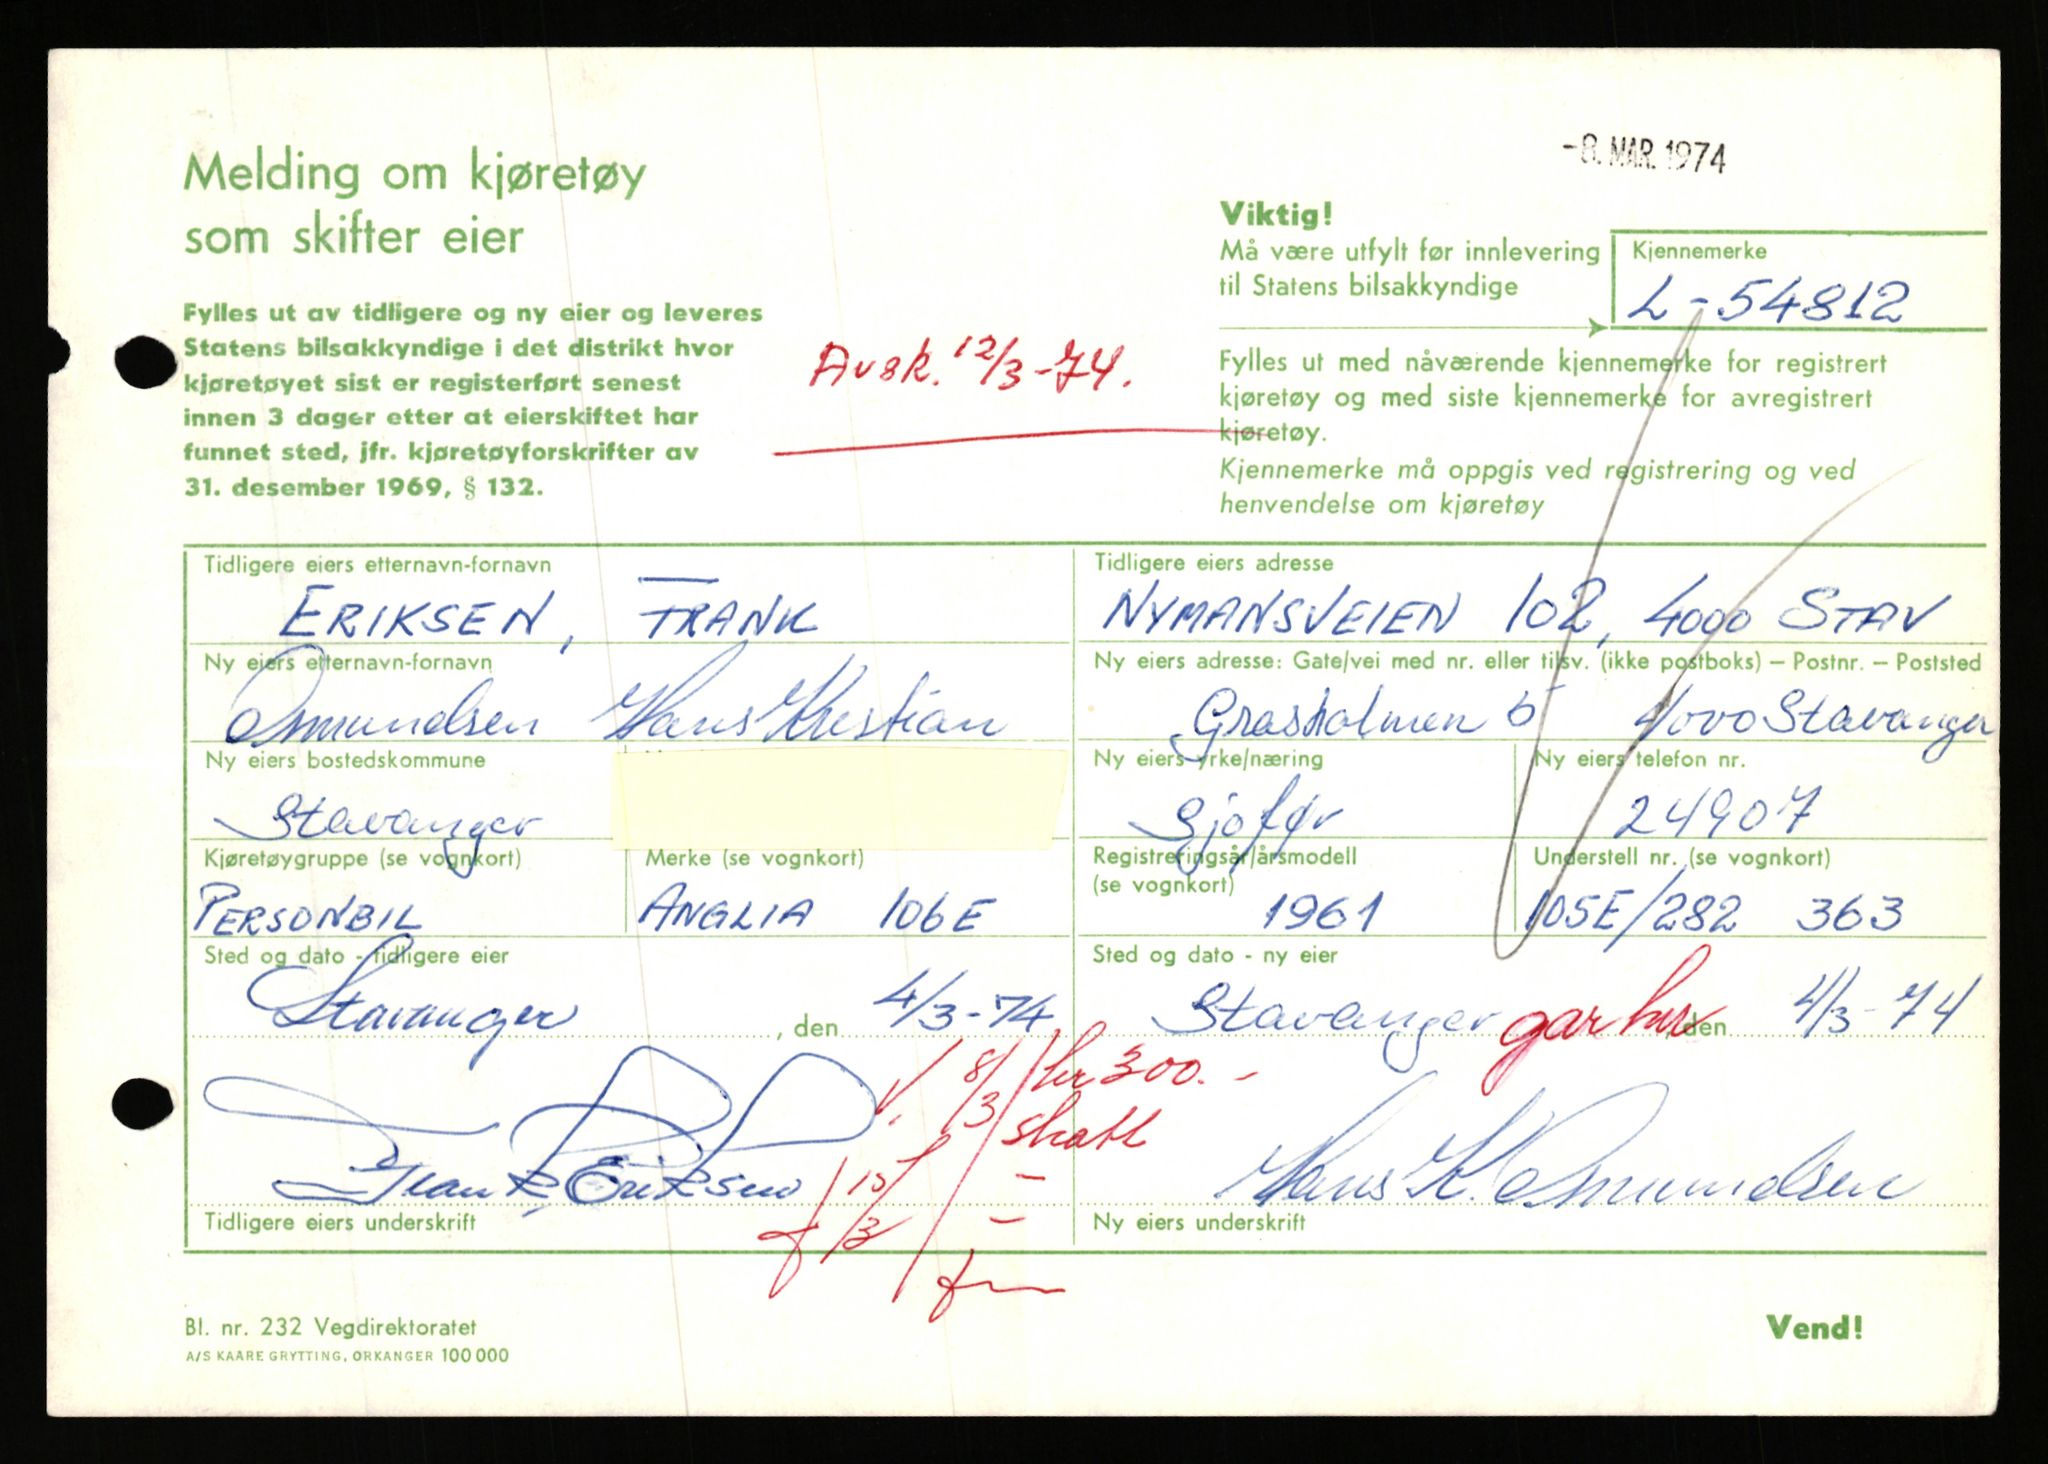 -8. MAR. 1974
Melding om kjøretøy
som skifter eier
Viktig!
Må være utfylt før innlevering
til Statens bilsakkyndige
Kjennemerke
L-54812
Fylles ut av tidligere og ny eier og leveres
Statens bilsakkyndige i det distrikt hvor
kjøretøyet sist er registerført senest
innen 3 dager etter at eierskiftet har
funnet sted, jfr. kjøretøyforskrifter av
31. desember 1969, § 132.
Avsk. 12/3-74.
Fylles ut med nåværende kjennemerke for registrert
kjøretøy og med siste kjennemerke for avregistrert
kjøretøy.
Kjennemerke må oppgis ved registrering og ved
henvendelse om kjøretøy
Tidligere eiers etternavn-fornavn
ERIKSEN, FRANK
Tidligere eiers adresse
NYMANSVEIEN 102, 4000 STAV
Ny eiers etternavn-fornavn
Osmundsen Hans Kristian
Ny eiers adresse: Gate/vei med nr. eller tilsv. (ikke postboks) – Postnr. – Poststed
Grasholmen 5 4000 Stavanger
Ny eiers bostedskommune
Stavanger
Ny eiers yrke/næring
Sjofør
Ny eiers telefon nr.
24907
Kjøretøygruppe (se vognkort)
PERSONBIL
Merke (se vognkort)
ANGLIA 106E
Registreringsår/årsmodell
(se vognkort)
1961
Understell nr. (se vognkort)
105E/282 363
Sted og dato - tidligere eier
Stavanger, den 4/3-74
Sted og dato - ny eier
Stavanger, den 4/3-74
8/3 kr 300.-
skatt
15/3
Frank Eriksen
Hans K. Osmundsen
Tidligere eiers underskrift
Ny eiers underskrift
Bl. nr. 232 Vegdirektoratet
A/S KAARE GRYTTING, ORKANGER 100 000
Vend!